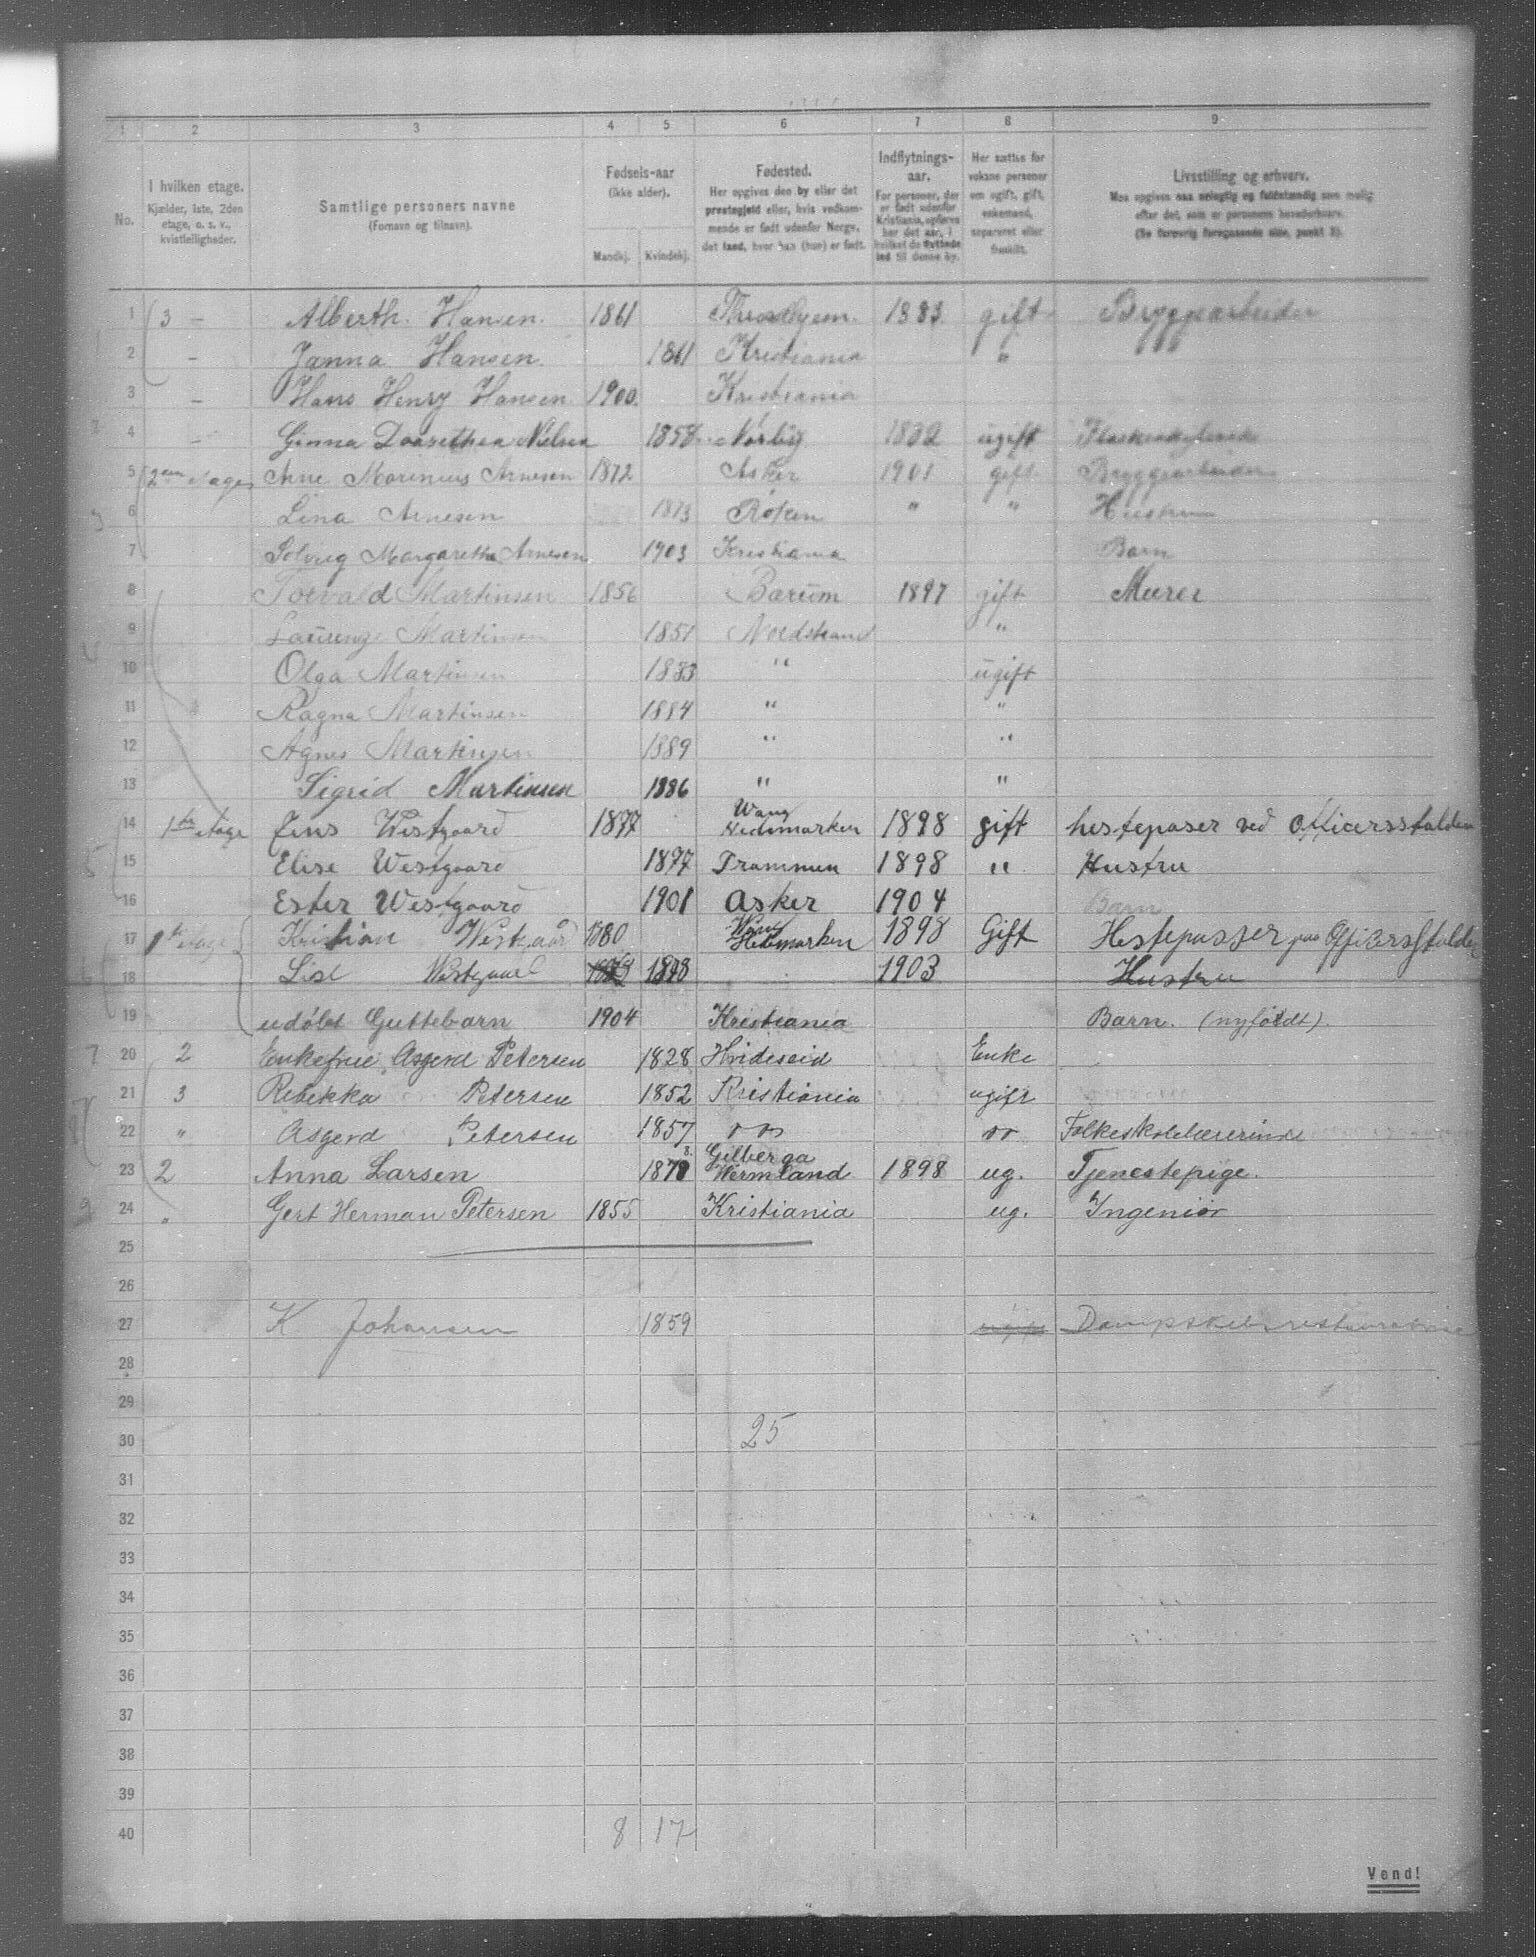 1 2 3 4 5 6 7 8 9
No.
I hvilken etage.
Kjælder, 1ste, 2den
etage, o. s. v.,
kvistleiligheder.
Samtlige personers navne
(Fornavn og tilnavn).
Fødsels-aar
(ikke alder).
Mandkj. Kvindekj.
Fødested.
Her opgives den by eller det
prestegjeld eller, hvis vedkom-
mende er født udenfor Norge,
det land, hvor han (hun) er født.
Indflytnings-
aar.
For personer, der
er født udenfor
Kristiania, opføres
her det aar, i
hvilket de flyttede
ind til denne by.
Her sættes for
voksne personer
om ugift, gift,
enkemand,
separeret eller
fraskilt.
Livsstilling og erhverv.
Man opgives saa nøiagtig og fuldstændig som mulig
efter det, som er personens hovederhverv.
(Se forøvrig foregaaende side, punkt 3).
1 3 – Alberth. Hansen. 1861 Throndhjem. 1883 gift Bryggearbeider
2 – Janna Hansen. 1861 Kristiania "
3 – Hans Henry Hansen 1900. Kristiania
4 – Ginna Doorethea Nielsen 1858 Nørbÿ 1882 ugift
5 2den etage Arne Marinius Arnesen 1872 Asker 1901 gift Bryggearbeider
6 Lina Arnesen 1873 Røken " " Hustru
7 Solveig Margarethe Arnesen 1903 Kristiania Barn
8 Torvald Martinsen 1856 Barum 1897 gift Murer
9 Laurenze Martinsen 1851 Nordstrand "
10 Olga Martinsen 1883 " ugift
11 Ragna Martinsen 1884 " "
12 Agnes Martinsen 1889 " "
13 Sigrid Martinsen 1886 " "
14 1ste etage Jens Westgaard 1877 Wang Hedemarken 1898 gift hestepaser ved Officersstalden
15 Elise Westgaard 1877 Drammen 1898 " Hustru
16 Ester Westgaard 1901 Asker 1904 Barn
17 1ste etage Kristian Westgaard 1880 Wang Hedmarken 1898 Gift Hestepasser paa Offisersstalden
18 Lise Westgaard 1878 1903 Hustru
19 udøbt Guttebarn 1904 Kristiania Barn. (nyfödt).
20 2 Enkefrue Asgerd Petersen 1828 Hvideseid Enke
21 3 Rebekka Petersen 1852 Kristiania ugift
22 " Asgerd Petersen 1857 Folkeskolelærerinde
23 2 Anna Larsen 1878 Gilberga Wermland 1898 ug. Tjenestepige.
24 " Gert Herman Petersen 1855 Kristiania ug. Ingeniör
25
26
27 K Johansen 1859 ugift Dampskibsrestauratrise
28
29
30 25
31
32
33
34
35
36
37
38
39
40 8 17
Vend!